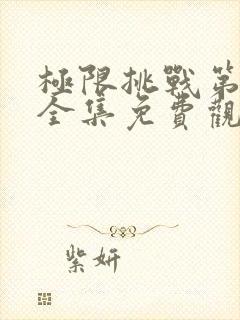 極限挑戰第
全集免費觀
紫妍